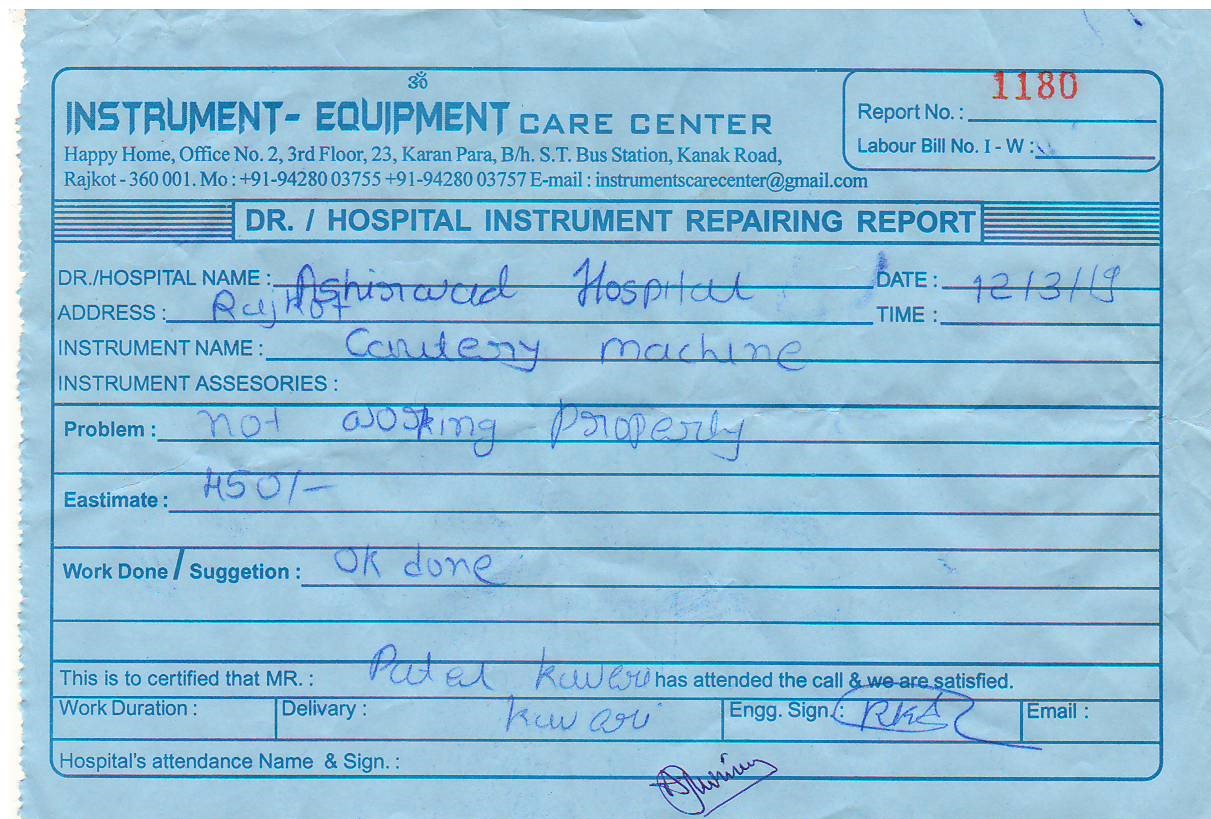 ॐ
INSTRUMENT- EQUIPMENT CARE CENTER
Happy Home, Office No. 2, 3rd Floor, 23, Karan Para, B/h. S.T. Bus Station, Kanak Road,
Rajkot - 360 001. Mo : +91-94280 03755 +91-94280 03757 E-mail : instrumentscarecenter@gmail.com
Report No. : 1180
Labour Bill No. I - W :
DR. / HOSPITAL INSTRUMENT REPAIRING REPORT
DR./HOSPITAL NAME : Ashirwad Hospital DATE : 12/3/19
ADDRESS : Rajkot TIME :
INSTRUMENT NAME : Cautery machine
INSTRUMENT ASSESORIES :
Problem : not working Properly
Eastimate : 450/-
Work Done / Suggetion : Ok done
This is to certified that MR. : Patel has attended the call & we are satisfied.
Work Duration : Delivary : Engg. Sign. : Email :
Hospital's attendance Name & Sign. :